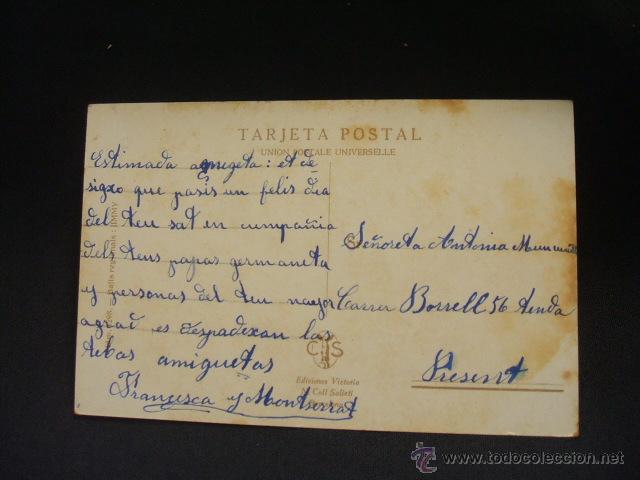 TARJETA POSTAL
UNION POSTALE UNIVERSELLE
Estimada amigeta: et de-
sigxo que pasis un felis dia
del teu sat en cumpañia
dels teus papas germaneta
y personas del teu major
agrad es despadexan las
tebas amiguetas
Francesca y Montserrat
Señoreta Antonia
Carrer Borrell 56 tenda
Present
CS
Ediciones Victoria
N. Coll Salieti
JIMMY
www.todocoleccion.net